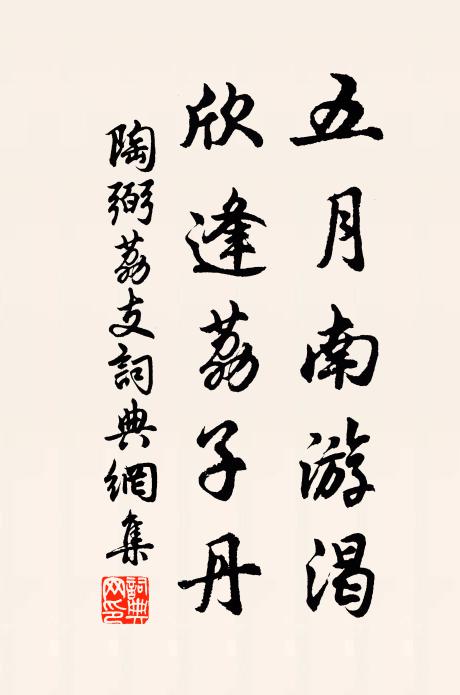 五月南游渴
欣逢荔子丹
陶弼荔支詞典網集
詞典網印